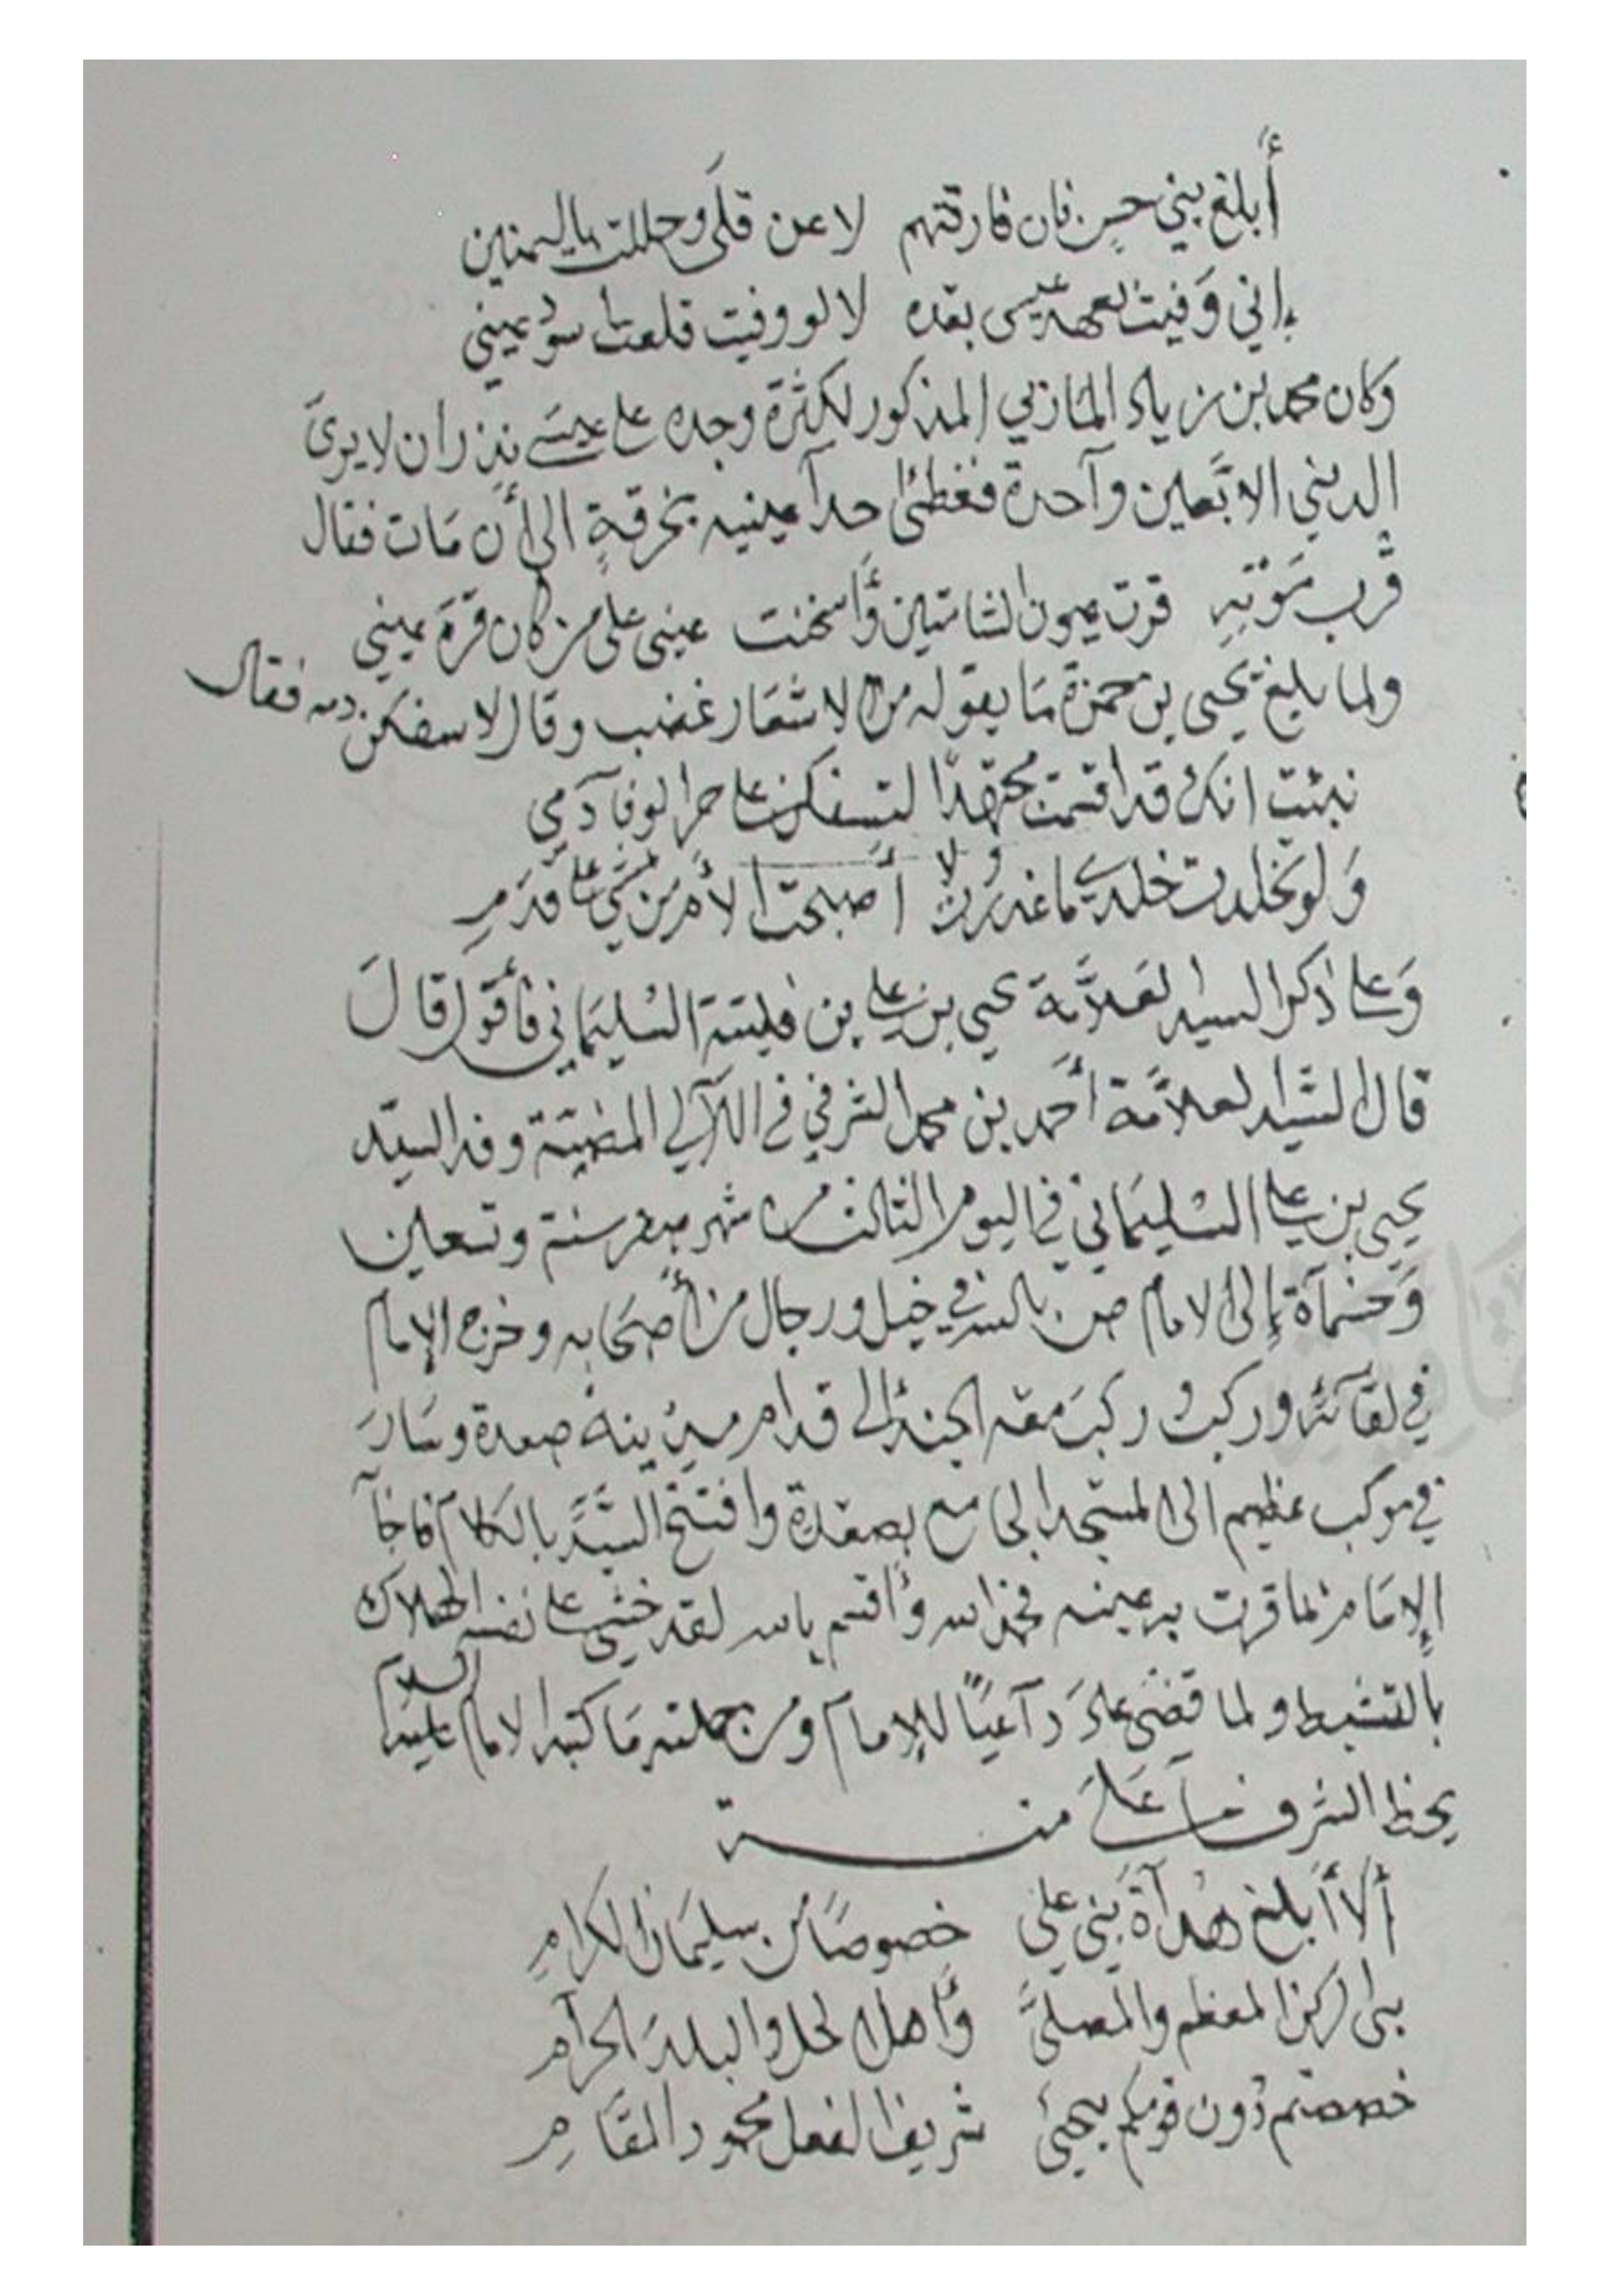 أبلغ بني حسن فان فارقتهم لا عن قلى وحللت باليمنين
إني وفيت لعهد عيسى بعده لا لو وفيت قلعت سود عيني
وكان محمد بن زياد المازني المذكور لكثرة وجده على عيسى نذر ان لا يرى
الدنيى الا بعين وآحدة فغطى احدآ عينيه بخرقةٍ الى أن مات فقال
قرب موته قرت عيون الشامتين وأسخنت عيني على من كان قرة عيني
ولما بلغ يحيى بن حمزة ما يقوله من الاشعار غضب وقال لاسفكن دمه فقال
نبئت انك قد اقسمت مجتهدًا لتسفكن على حر الوفآ دمي
ولو تخلدت خلدي ما غدرت ولا أصبحت الأم من يمشي على قدم
وعلى ذكر السيد العلامة يحيى بن علي بن فليتة السليماني فأقول قال
قال السيد العلامة أحمد بن محمد الشرفي في اللآلي المضيئة وفد السيد
يحيى بن علي السليماني في اليوم الثالث من شهر صفر سنة وتسعين
وخمسمآة إلى الامام ص بالله في خيل ورجال من أصحابه وخرج الإمام
في لقآئه وركب وركب معه الجند الى قدام مدينة صعدة وسار
في موكب عظيم الى المسجد الجامع بصعدة وافتتح السيد بالكلام فاجآ
الإمام بما قرت به عينه فحمد الله وأقسم بالله لقد خشي على نفسه الهلاك
بالتثبيط ولما قضى عاد دآعيًا للإمام ومن جملته ما كتبه الامام عليه السلام
بحظ الشرفآ على منه
ألا أبلغ هدآة بني علي خصوصًا من سليمان الكرام
بني الركن المعظم والمصلى وأهل الحل والبلد الحرآم
خصصتم دون قومكم بيحيى شريف الفعل محمود المقام